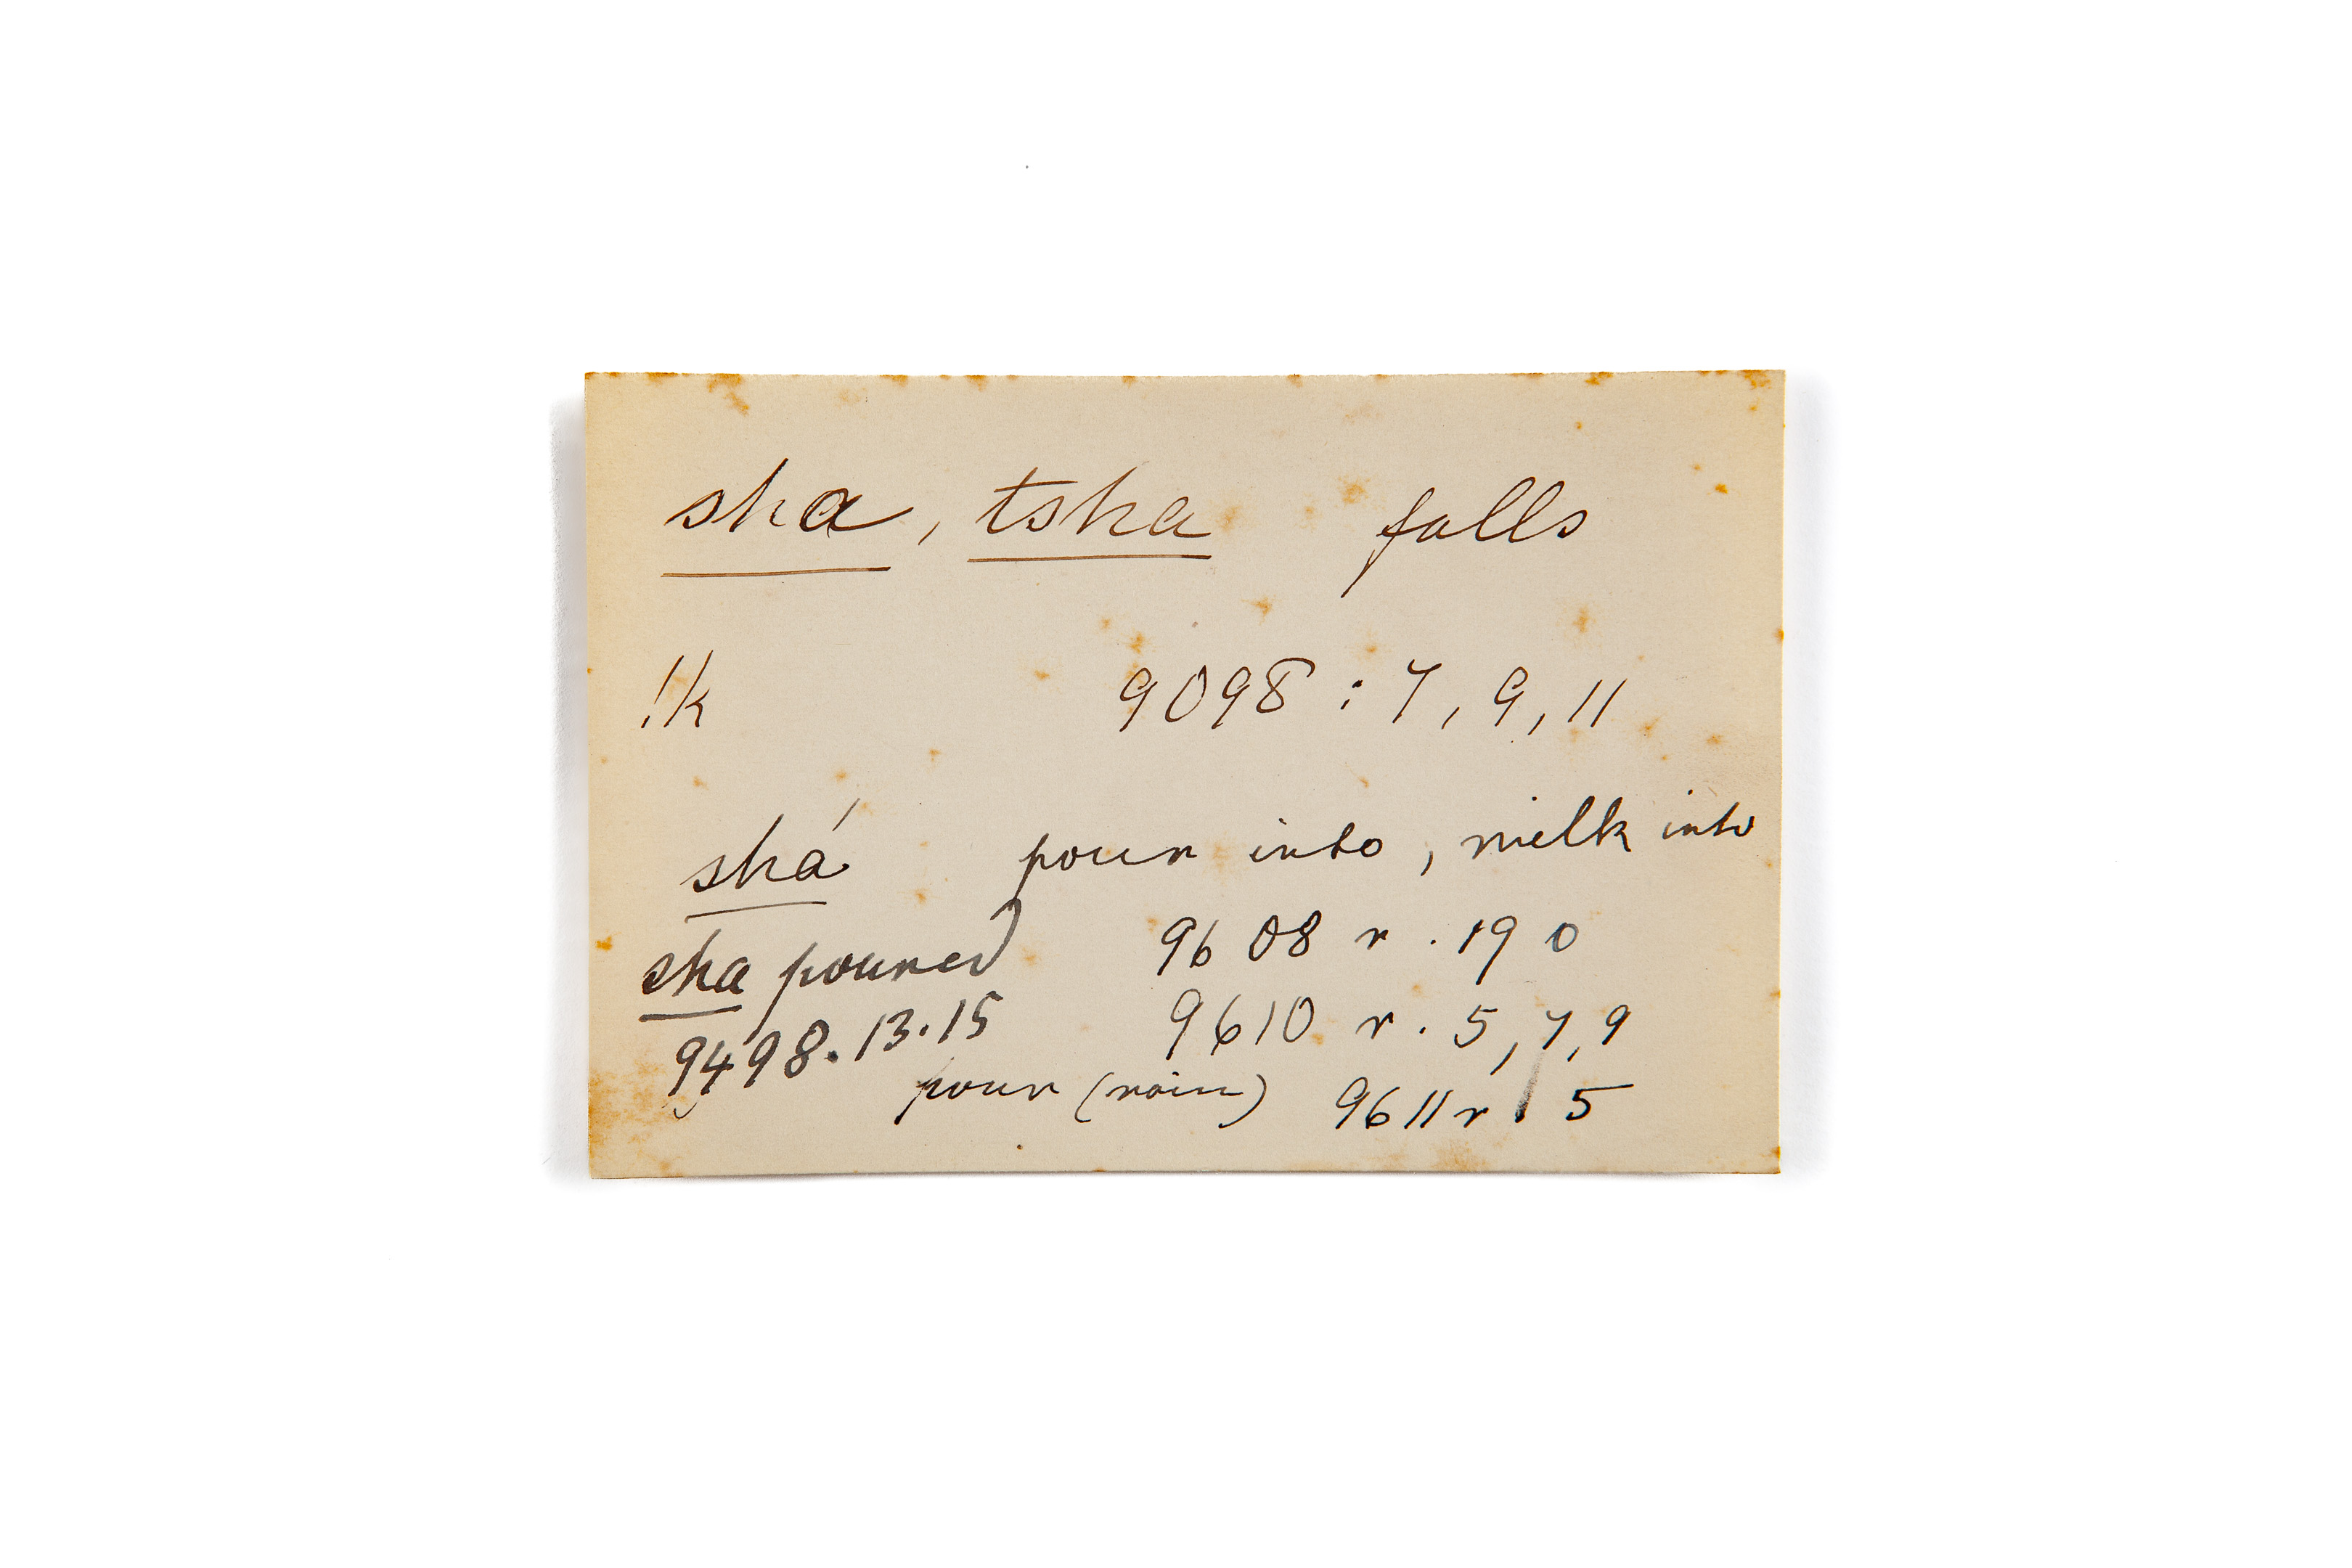 sha, tsha falls
!k 9098 : 7, 9, 11
shá pour into, milk into
sha poured 9608 r. 19 0
9498. 13. 15 9610 r. 5, 7, 9
pour (rain) 9611 r. 5